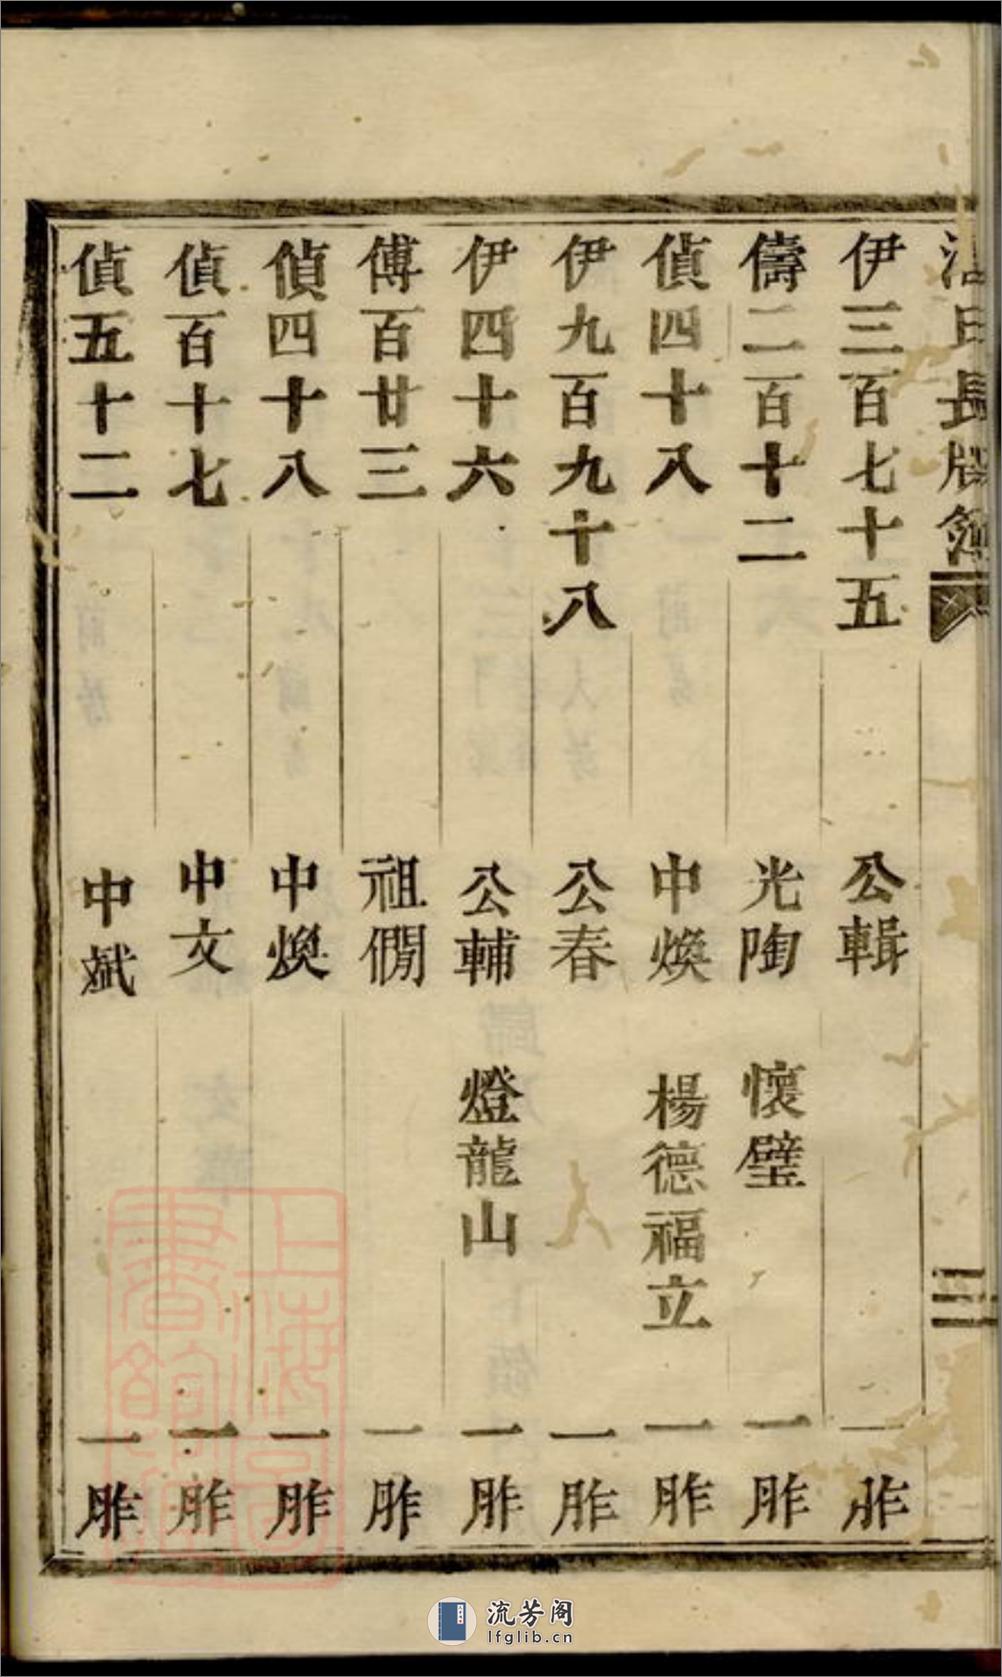 氏長牌簿
三
伊三百七十五 公輯 一胙
儔二百十二 光陶 懷璧 一胙
偵四十八 中煥 楊德福立 一胙
伊九百九十八 公春 一胙
伊四十六 公輔 燈龍山 一胙
傅百廿三 祖僩 一胙
偵四十八 中煥 一胙
偵百十七 中文 一胙
偵五十二 中斌 一胙
上海圖書館藏
流芳阁
lfglib.cn